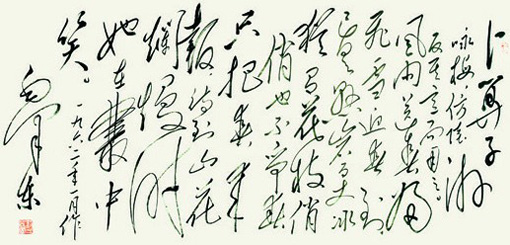 卜算子
咏梅，仿陆游
反其意而用之。
风雨送春归
飞雪迎春到
已是悬崖百丈冰
犹有花枝俏
俏也不争春
只把春来
报，待到山花
烂漫时
她在叢中
笑。
一九六二年一月作
毛泽东